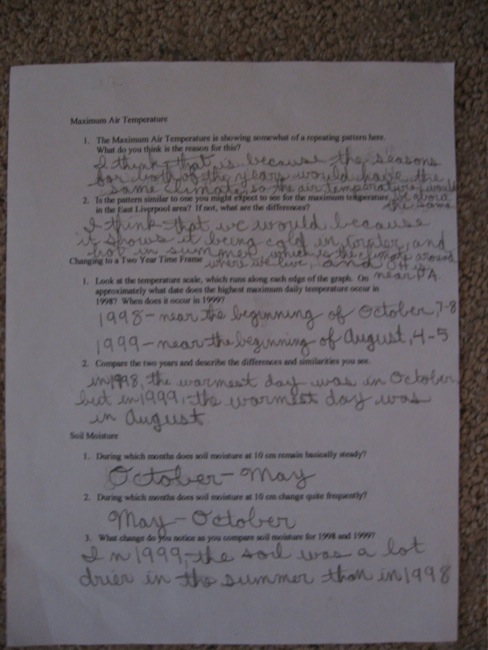 Maximum Air Temperature
1. The Maximum Air Temperature is showing somewhat of a repeating pattern here.
What do you think is the reason for this?
I think that is because the seasons
for both of the years would have the
same climate, so the air temperature would
be about
the same
2. Is the pattern similar to one you might expect to see for the maximum temperature
in the East Liverpool area? If not, what are the differences?
I think that we would because
it shows it being cold in winter, and
hot in summer which is the climate around
where we live, and
near PA
Changing to a Two Year Time Frame
1. Look at the temperature scale, which runs along each edge of the graph. On
approximately what date does the highest maximum daily temperature occur in
1998? When does it occur in 1999?
1998-near the beginning of October, 7-8
1999-near the beginning of August, 4-5
2. Compare the two years and describe the differences and similarities you see.
in 1998, the warmest day was in October,
but in 1999, the warmest day was
in August
Soil Moisture
1. During which months does soil moisture at 10 cm remain basically steady?
October-May
2. During which months does soil moisture at 10 cm change quite frequently?
May-October
3. What change do you notice as you compare soil moisture for 1998 and 1999?
In 1999, the soil was a lot
drier in the summer than in 1998